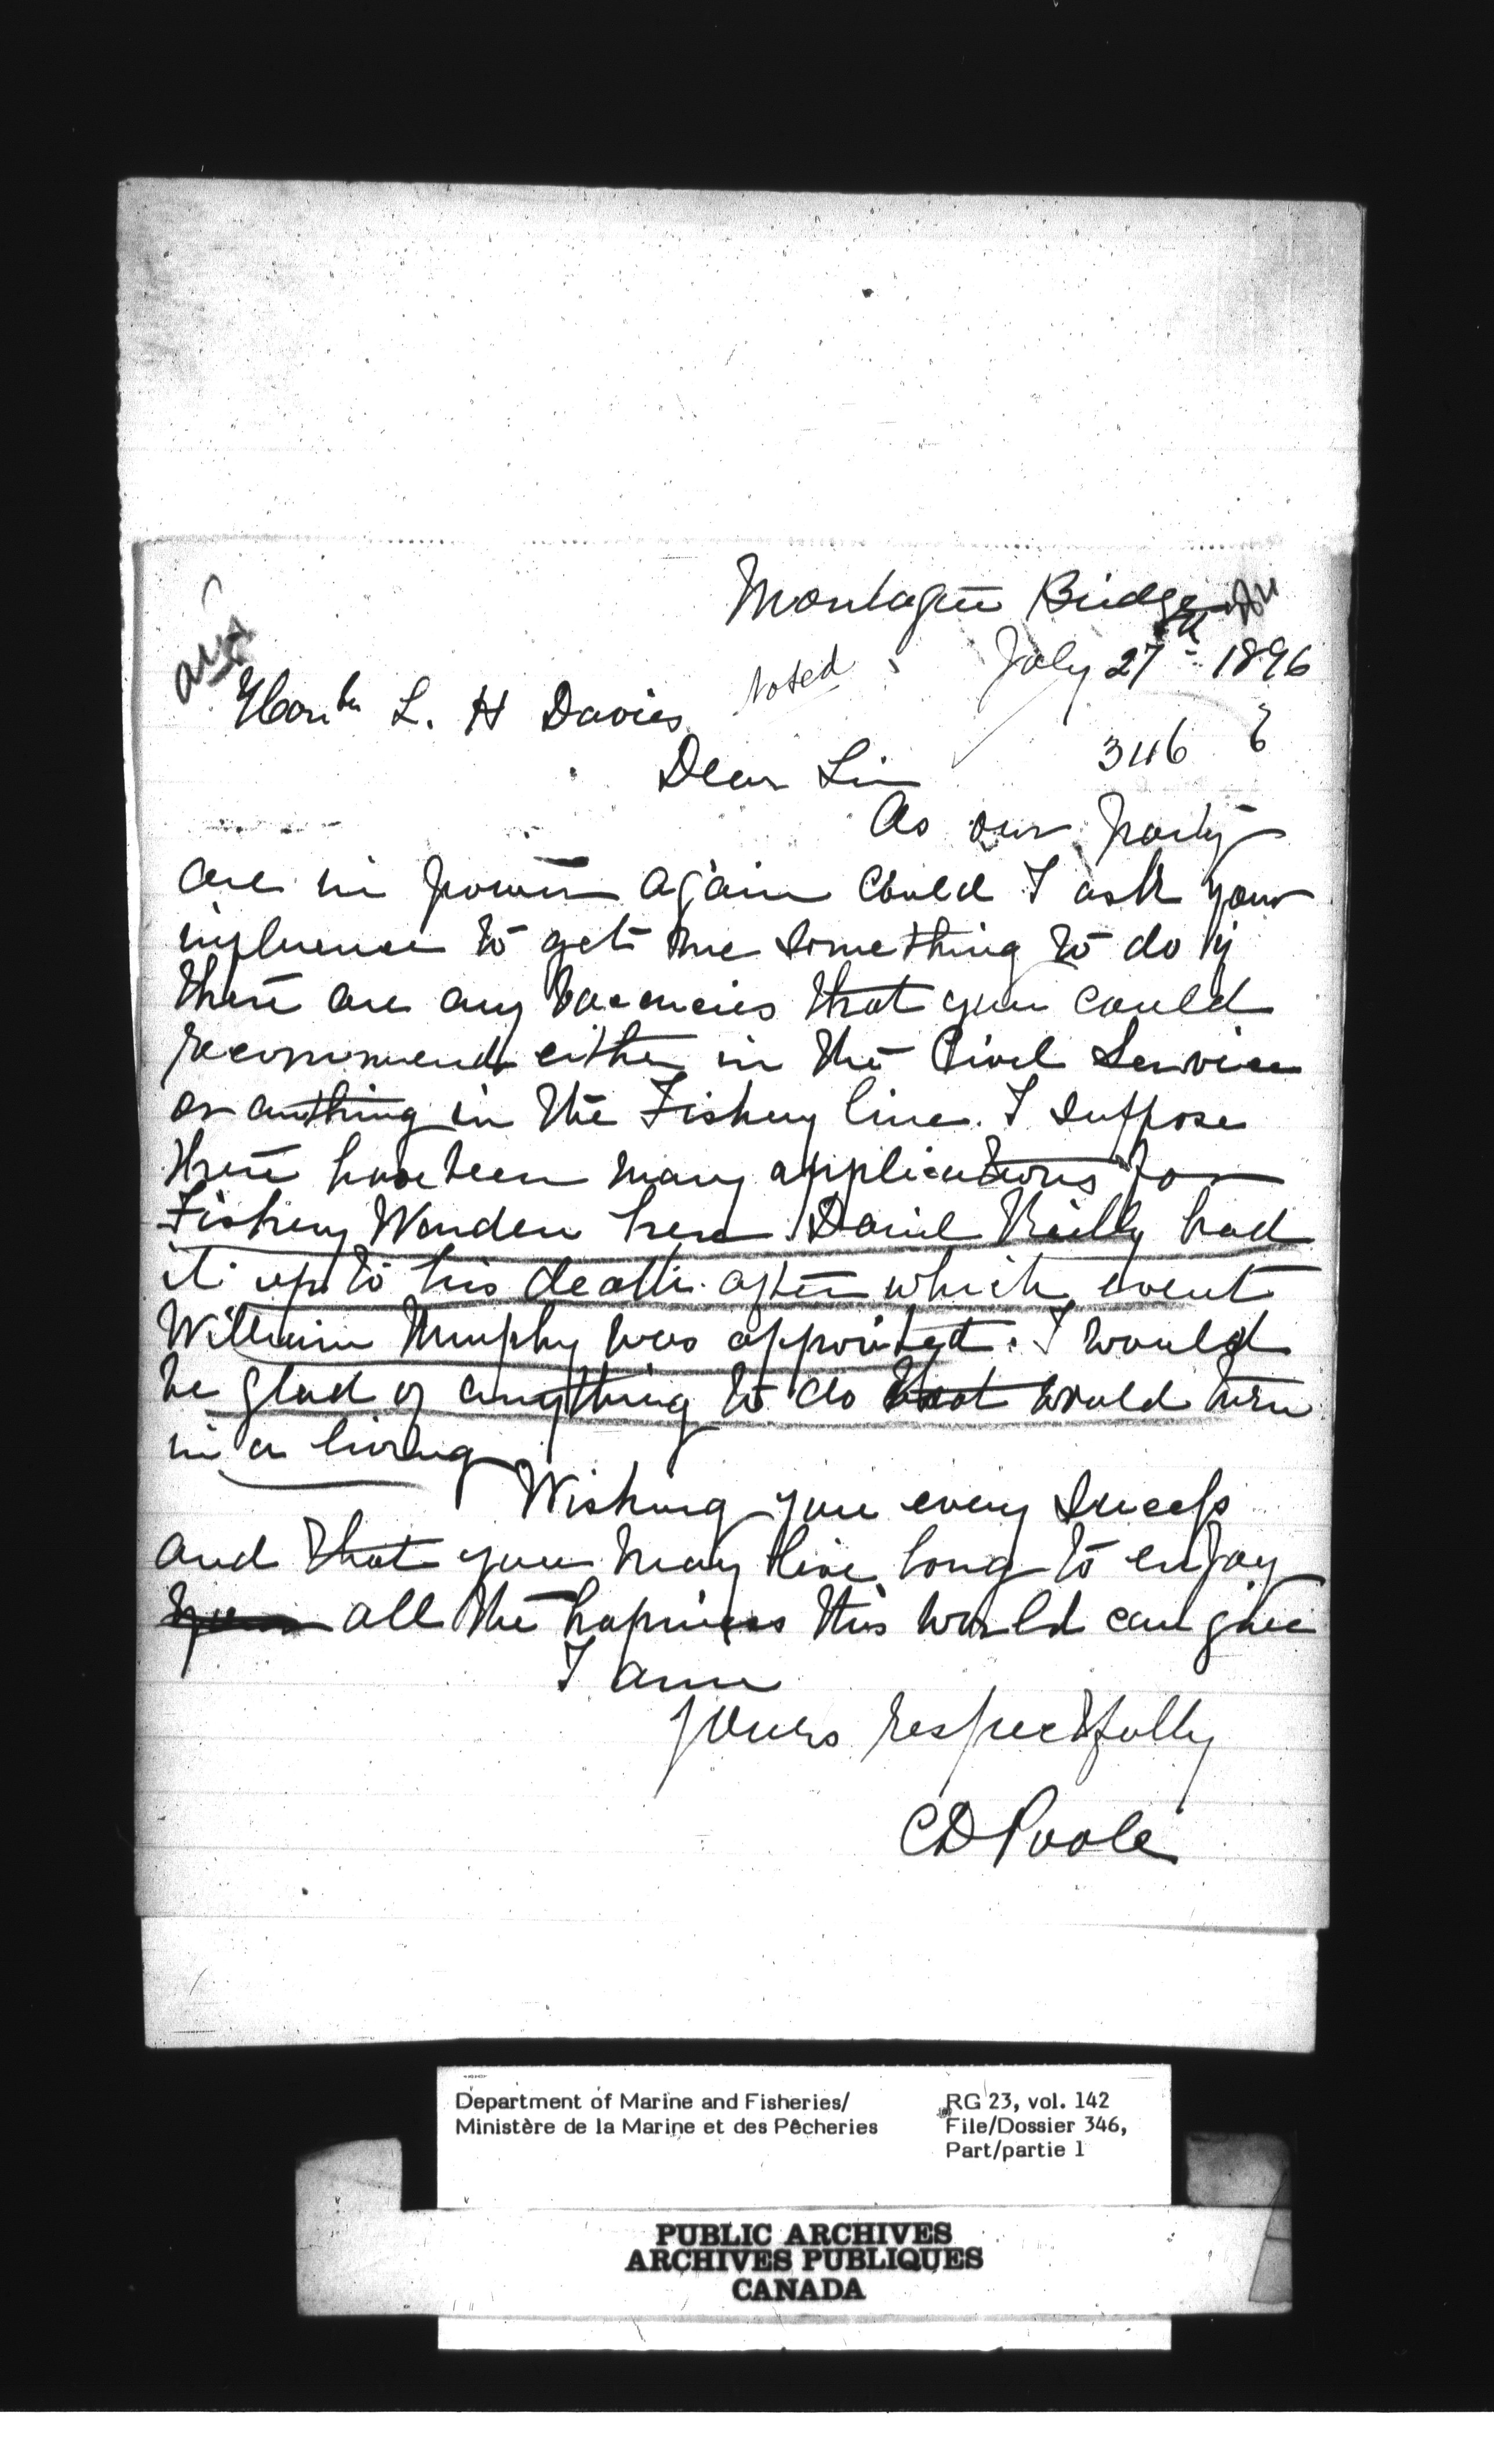 Montague Bridge
July 27th 1896
Noted
Honble L. H Davies
346
Dear Sir
As our party
are in power again could I ask your
influence to get me something to do if
there are any vacancies that you could
recommend either in the Civil Service
or anything in the Fishery line. I suppose
there have been many applications for
Fishery Warden here Daniel Reilly had
it up to his death after which event
William Murphy was appointed. I would
be glad of anything to do that would turn
in a living
Wishing you every success
and that you may live long to enjoy
all the hapiness this world can give
I am
yours respectfully
CD Poole
Department of Marine and Fisheries/ RG 23, vol. 142
Ministère de la Marine et des Pêcheries File/Dossier 346,
Part/partie 1
PUBLIC ARCHIVES
ARCHIVES PUBLIQUES
CANADA